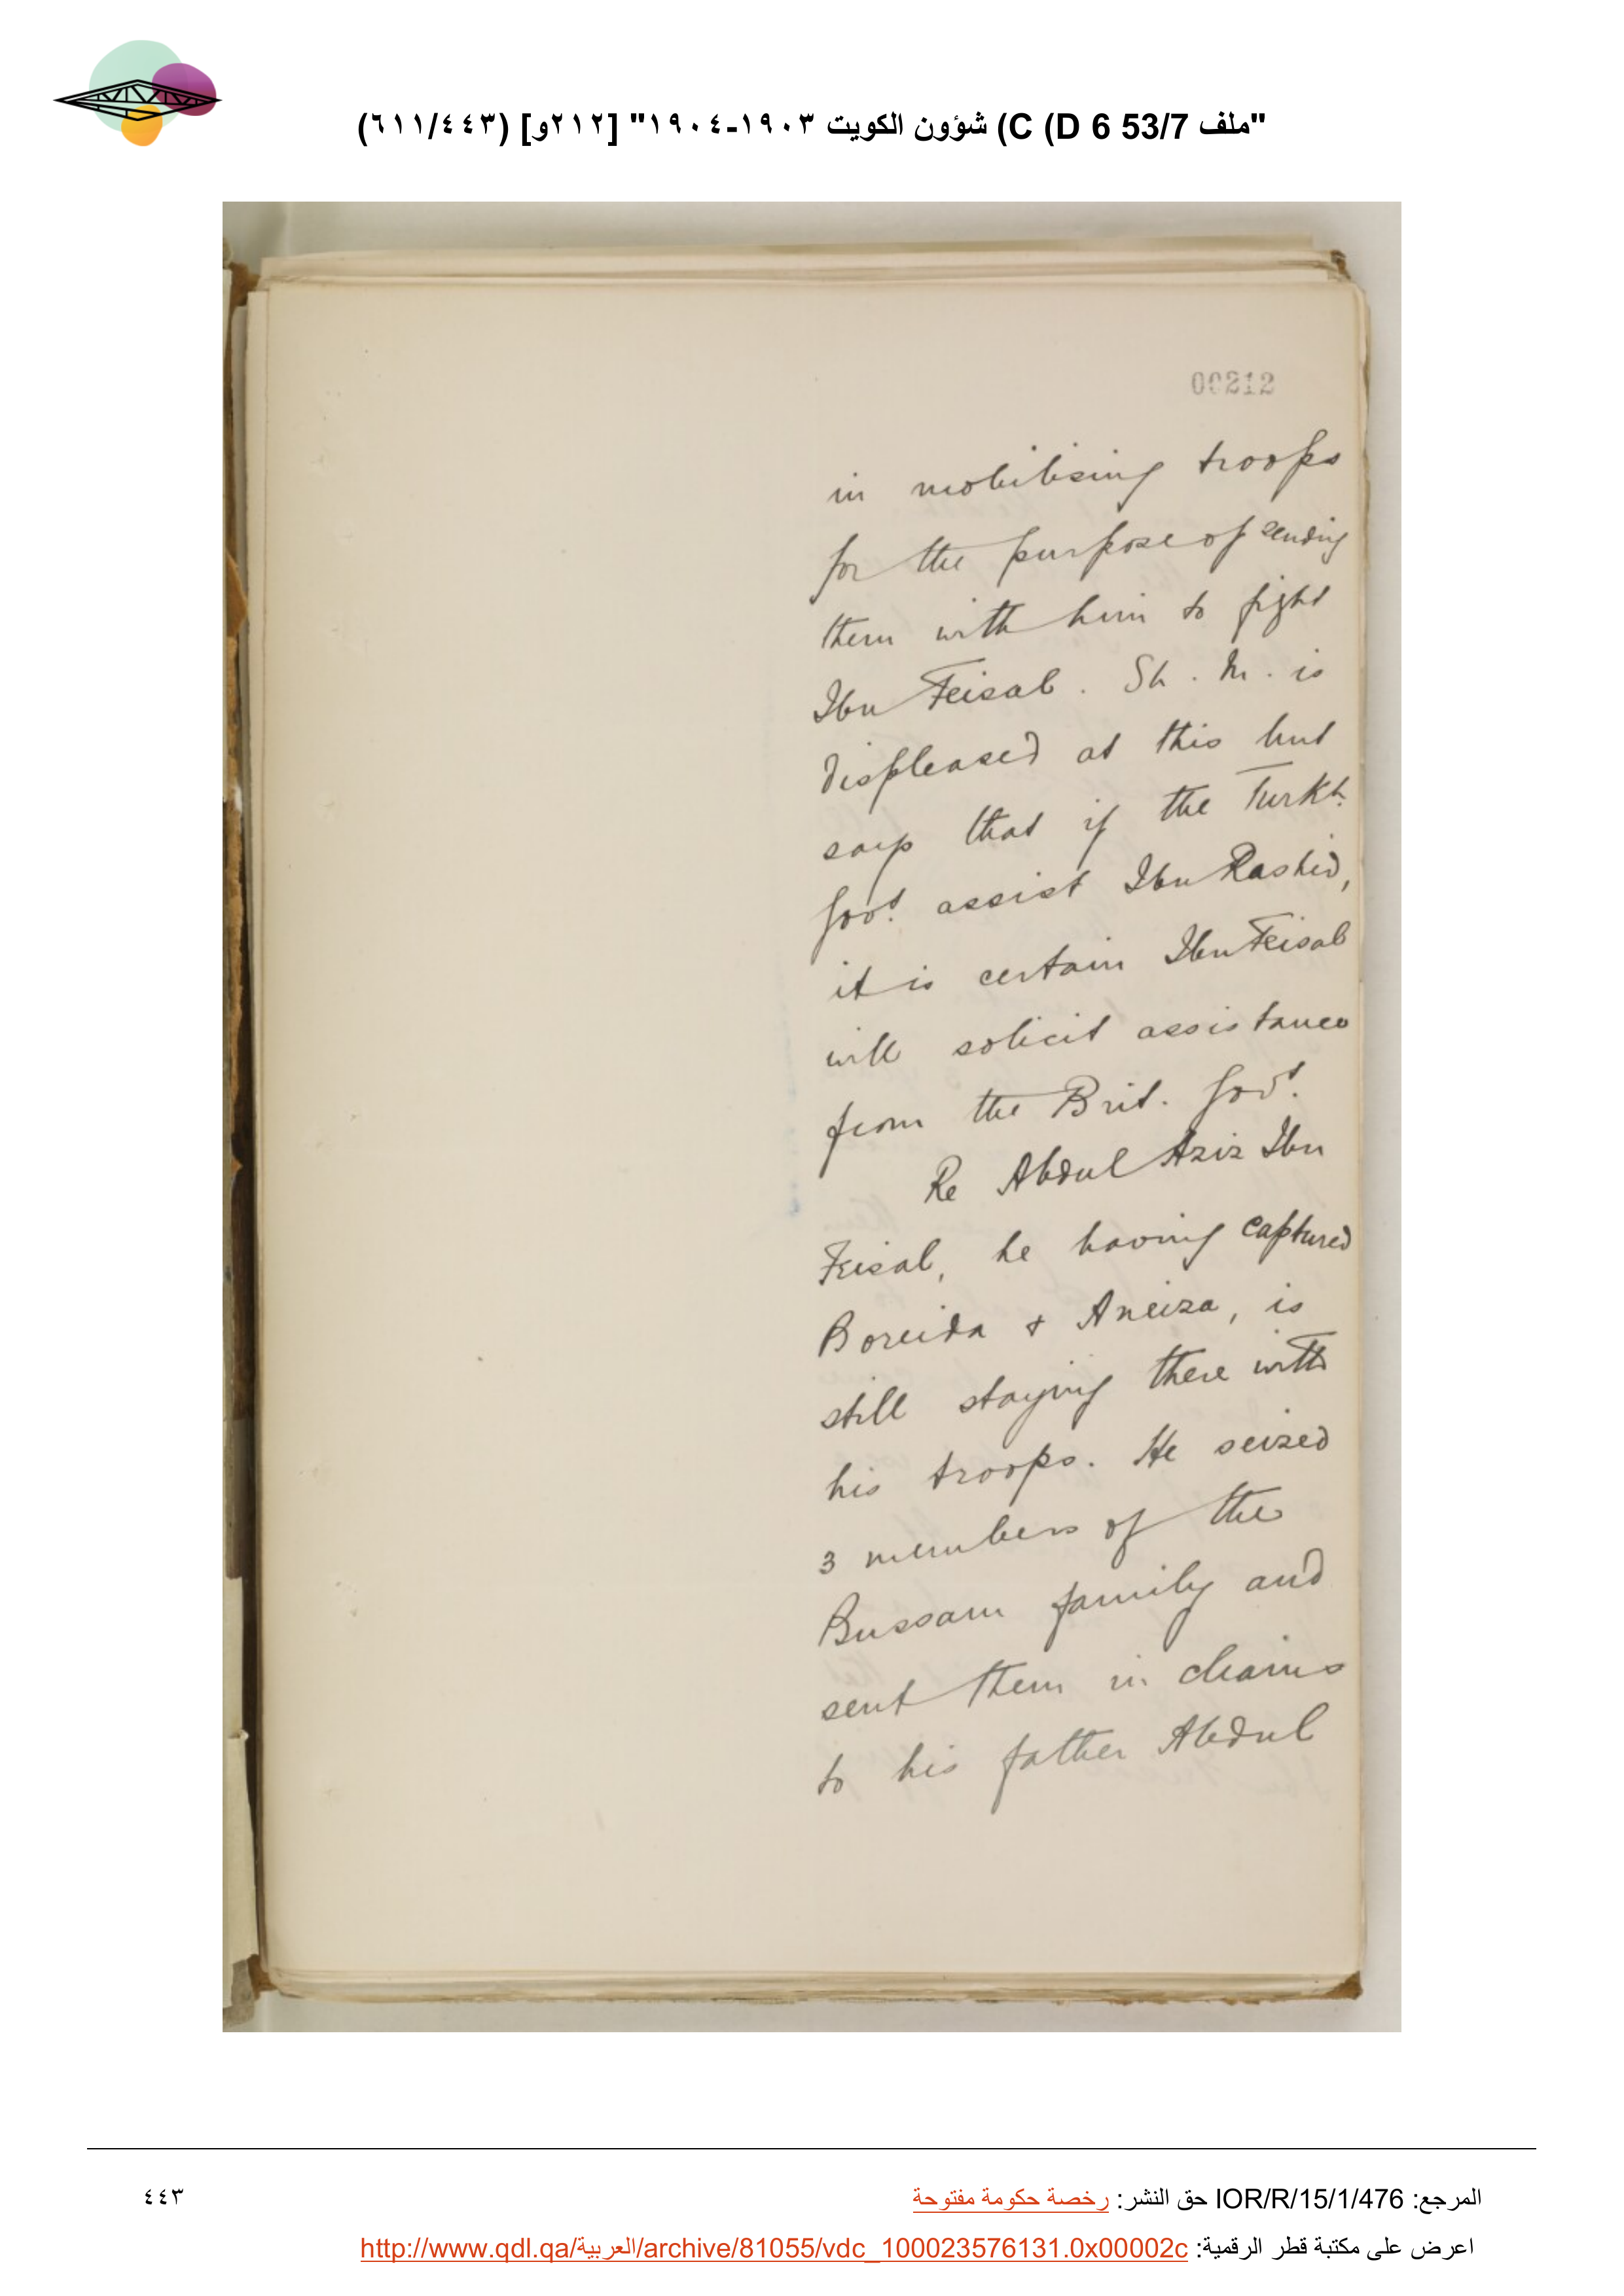 "ملف 53/7 C (D 6) شؤون الكويت ١٩٠٣-١٩٠٤" [٢١٢و] (٦١١/٤٤٣)
00212
in mobilising troops
for the purpose of sending
them with him to fight
Ibn Feisal. Sh. M. is
displeased at this but
says that if the Turkh.
Govt. assist Ibn Rashid,
it is certain Ibn Feisal
will solicit assistance
from the Brit. Govt.
Re Abdul Aziz Ibn
Feisal, he having captured
Boreida & Aneiza, is
still staying there with
his troops. He seized
3 members of the
Bussam family and
sent them in chains
to his father Abdul
المرجع: IOR/R/15/1/476 حق النشر: رخصة حكومة مفتوحة
٤٤٣
اعرض على مكتبة قطر الرقمية: http://www.qdl.qa/العربية/archive/81055/vdc_100023576131.0x00002c